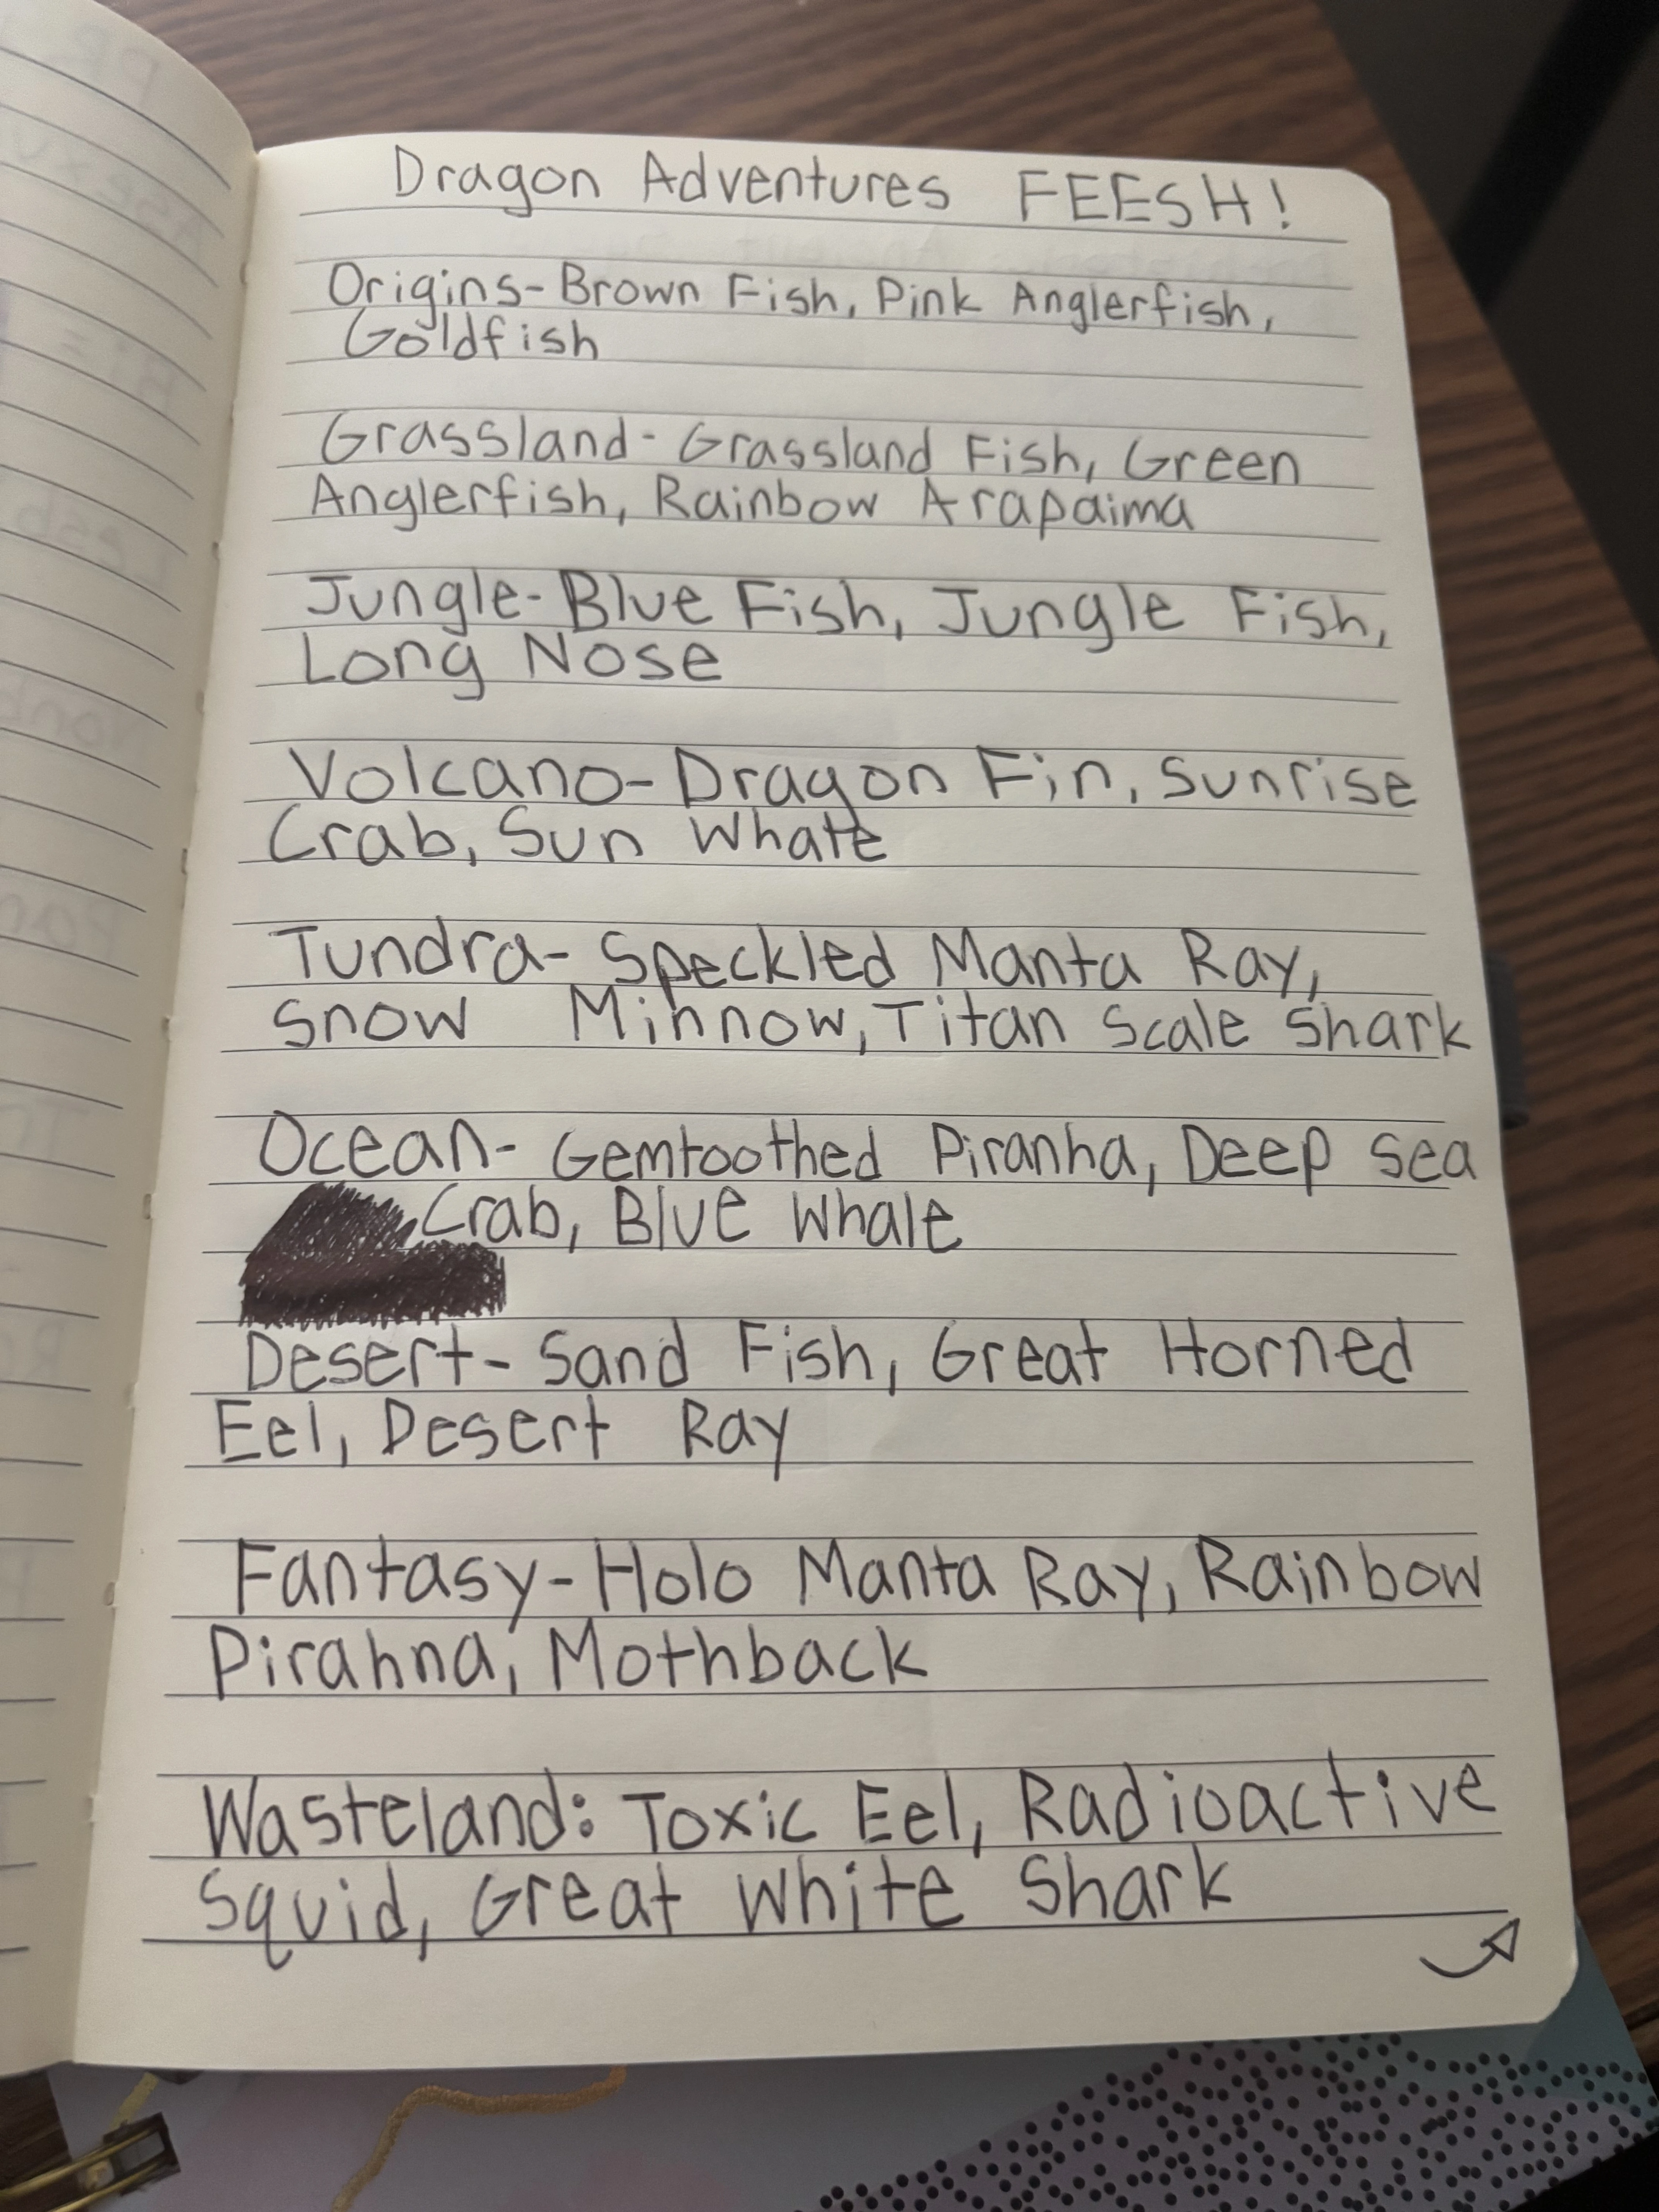 Dragon Adventures FEESH!
Origins-Brown Fish, Pink Anglerfish,
Goldfish
Grassland- Grassland Fish, Green
Anglerfish, Rainbow Arapaima
Jungle-Blue Fish, Jungle Fish,
Long Nose
Volcano-Dragon Fin, Sunrise
Crab, Sun Whale
Tundra-Speckled Manta Ray,
Snow Minnow, Titan Scale Shark
Ocean- Gemtoothed Piranha, Deep Sea
Crab, Blue Whale
Desert-Sand Fish, Great Horned
Eel, Desert Ray
Fantasy-Holo Manta Ray, Rainbow
Pirahna, Mothback
Wasteland: Toxic Eel, Radioactive
Squid, Great White Shark